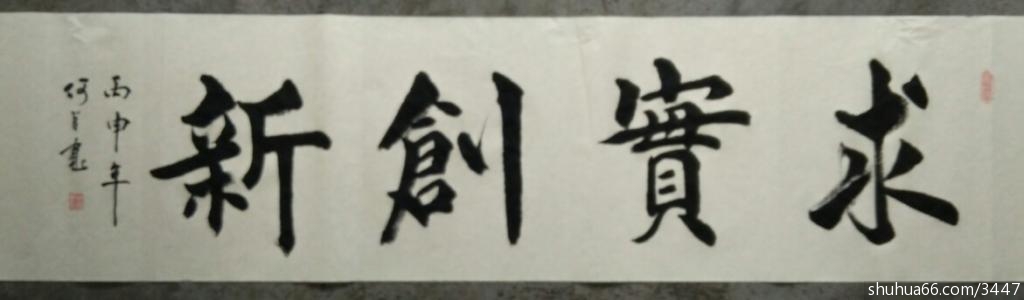 求實創新
丙申年
shuhua66.com/3447